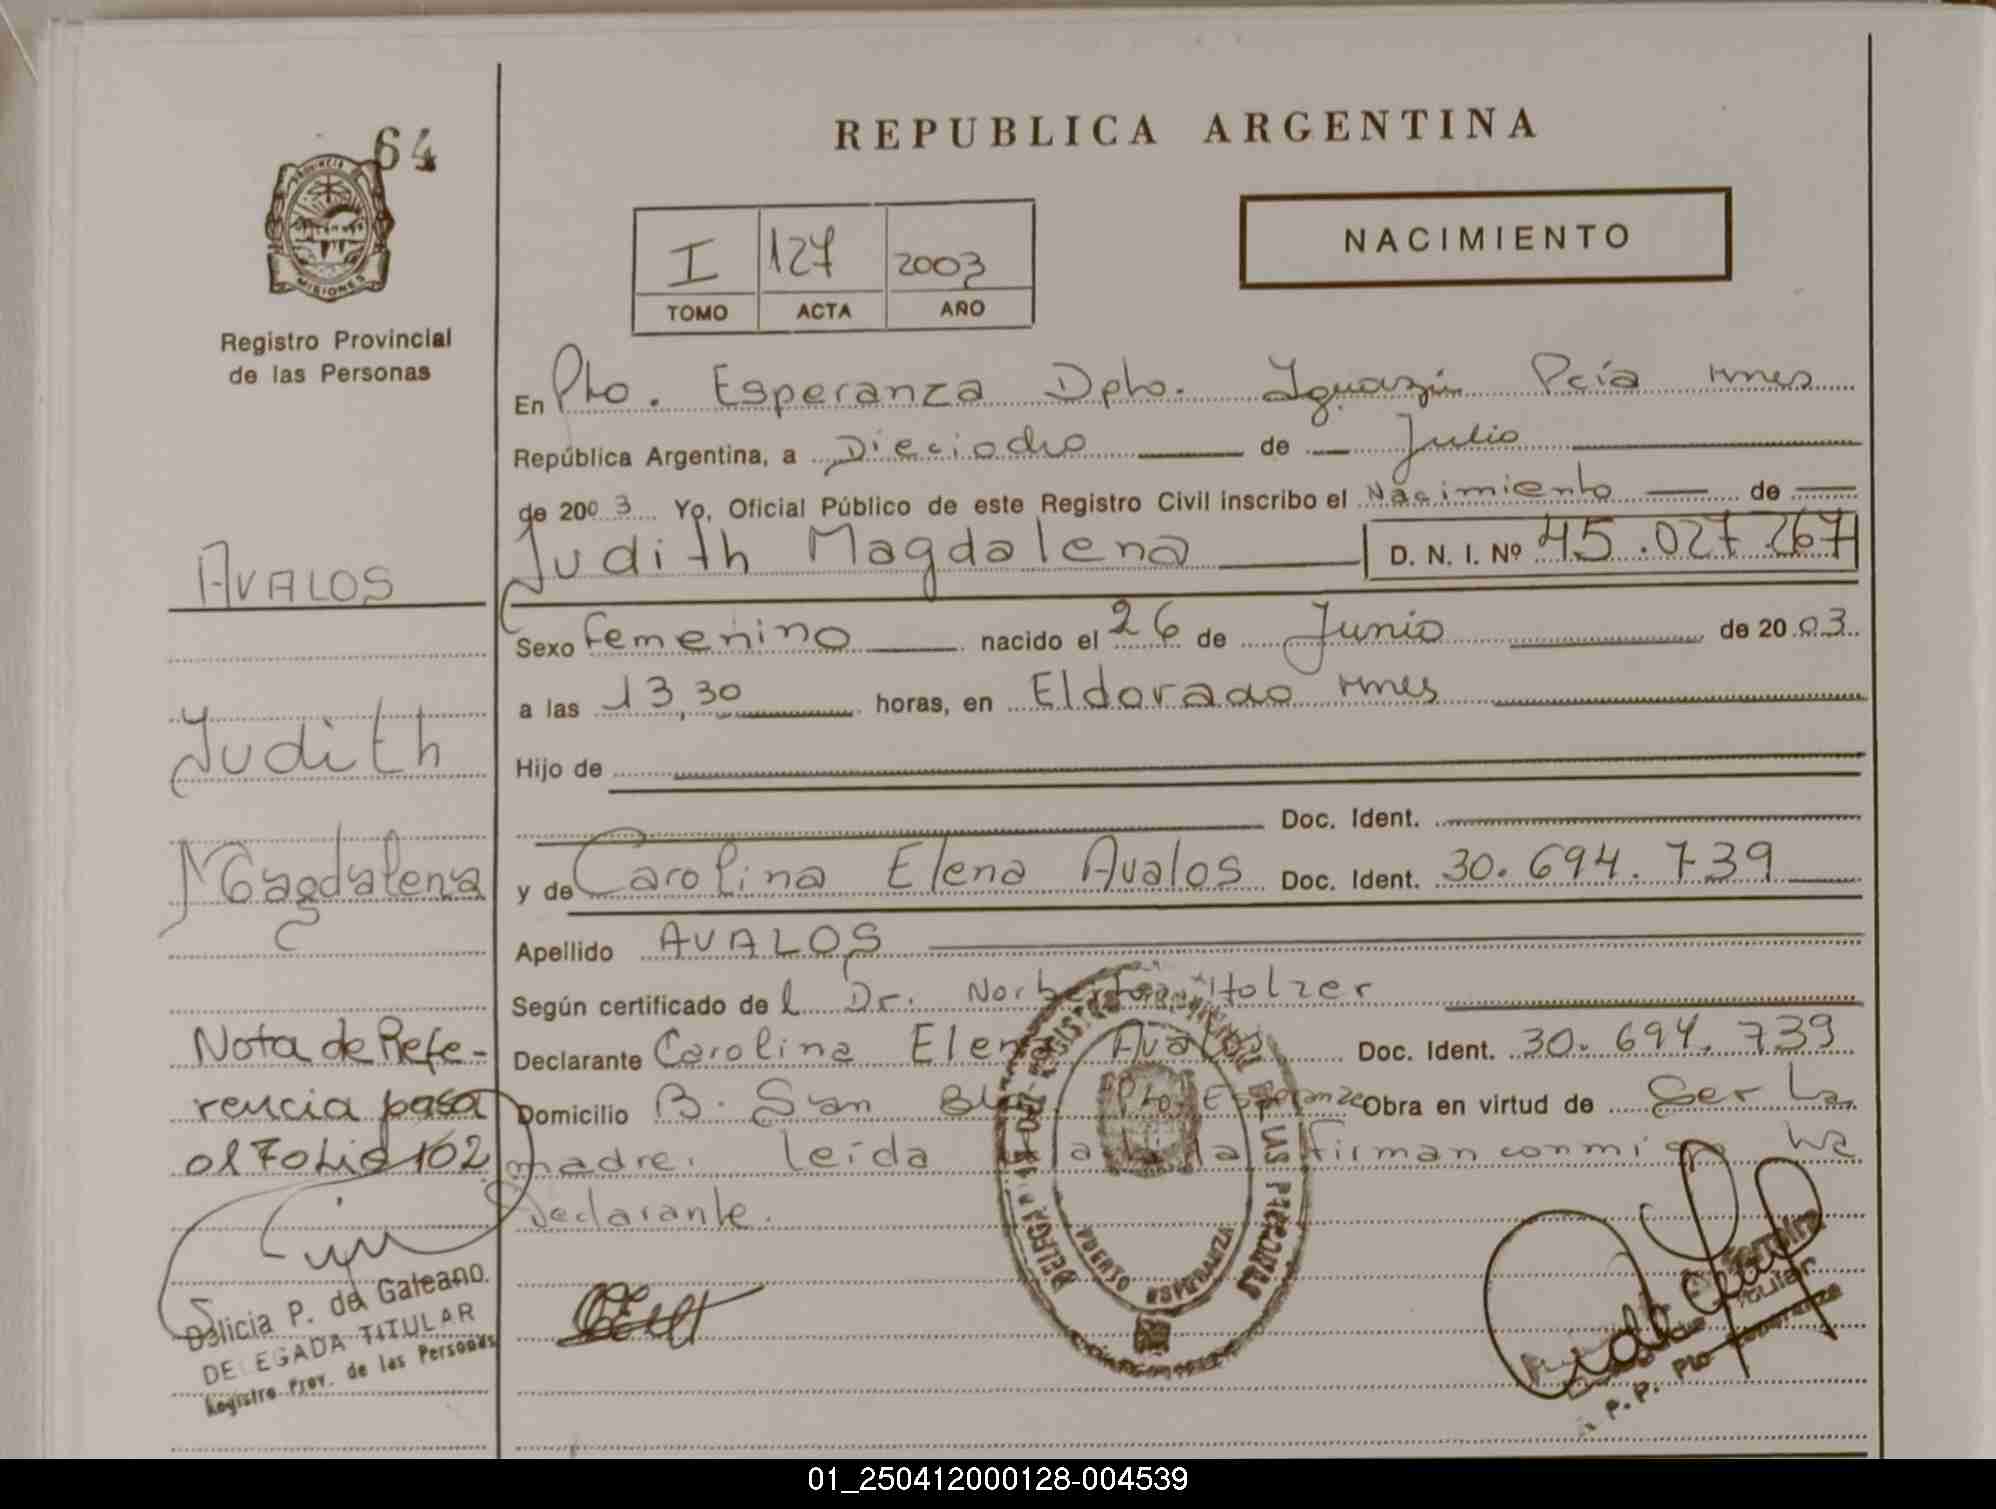 64
PROVINCIA DE
MISIONES
Registro Provincial
de las Personas
REPUBLICA ARGENTINA
I 127 2003
TOMO ACTA AÑO
NACIMIENTO
En Pto. Esperanza Dpto. Iguazú Pcía Mnes
República Argentina, a Dieciocho de Julio
de 2003 Yo, Oficial Público de este Registro Civil inscribo el Nacimiento de
Judith Magdalena D. N. I. Nº 45.027.267
AVALOS
Sexo femenino nacido el 26 de Junio de 2003
a las 13,30 horas, en Eldorado Mnes
Judith
Hijo de
Doc. Ident.
Magdalena
y de Carolina Elena Avalos Doc. Ident. 30.694.739
Apellido AVALOS
Según certificado del Dr. Norberto Holzer
Nota de Refe-
rencia pasa
al Folio 102
Declarante Carolina Elena Avalos Doc. Ident. 30.694.739
Domicilio B. San Pto Esperanza Obra en virtud de Ser La
madre. leída firman conmigo La
declarante.
Delicia P. de Galeano
DELEGADA TITULAR
Registro Prov. de las Personas
DE LAS PERSONAS
PUERTO ESPERANZA
01_250412000128-004539